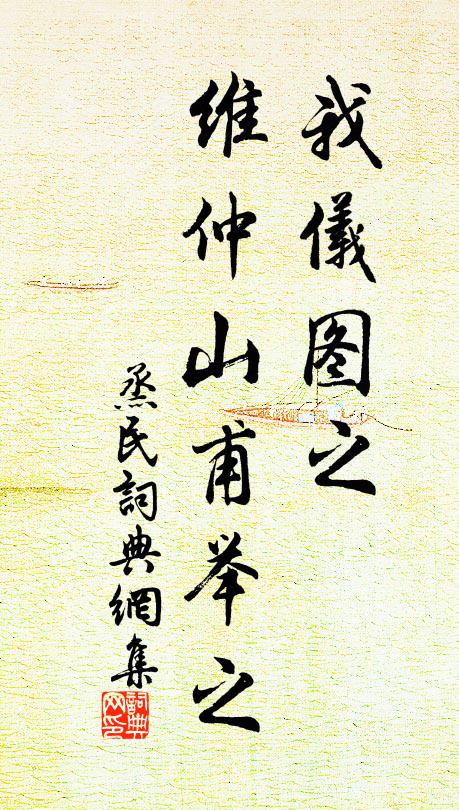 我儀图之
維仲山甫举之
烝民詞典網集
詞典
网印